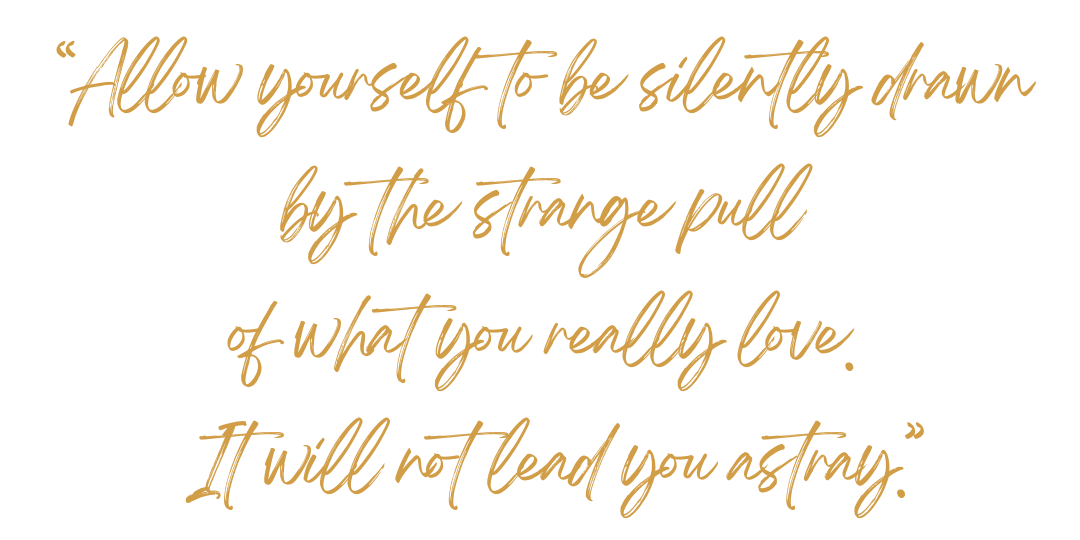 “Allow yourself to be silently drawn
by the strange pull
of what you really love.
It will not lead you astray.”